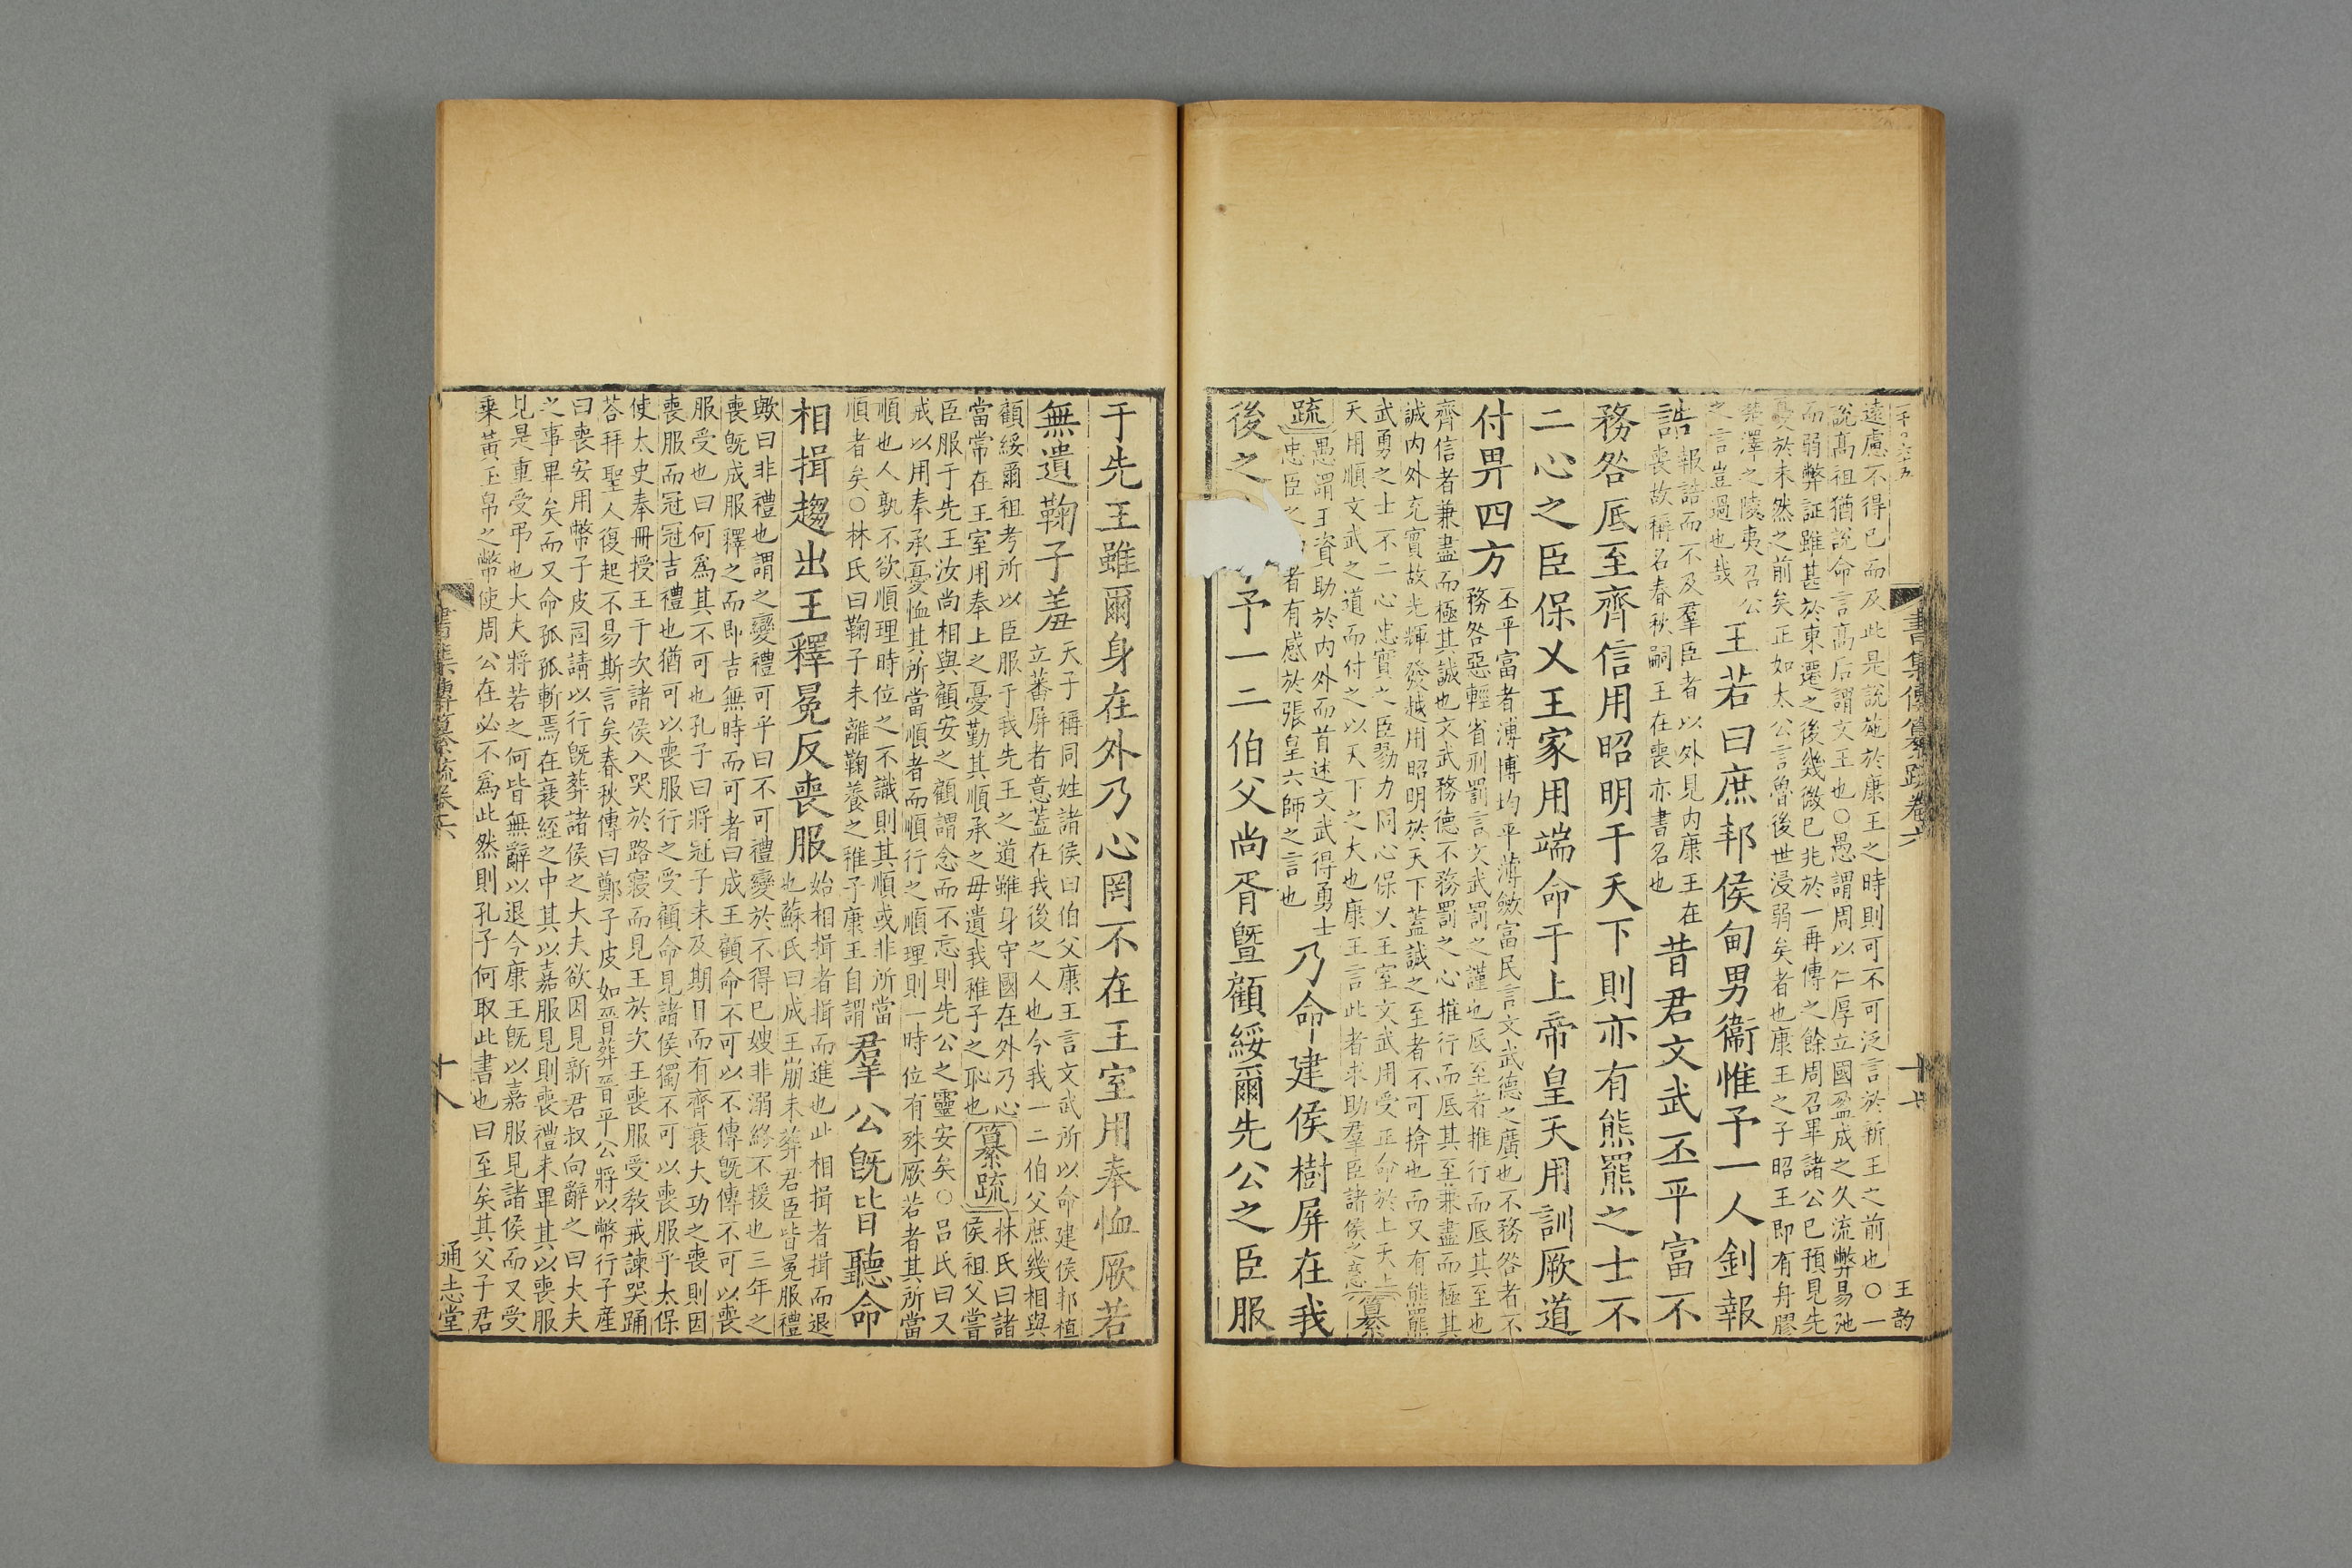 遠慮不得已而及此是說施於康王之時則可不可泛言於新王之前也○一
說高祖猶說命言高后謂文王也○愚謂周以仁厚立國盈成之久流弊易弛
而弱弊証雖甚於東遷之後幾微已兆於一再傳之餘周召畢諸公已預見先
憂於未然之前矣正如太公言魯後世浸弱矣者也康王之子昭王即有舟膠
楚澤之陵夷召公
之言豈過也哉
王若曰庶邦侯甸男衛惟予一人釗報
誥
報誥而不及羣臣者以外見内康王在
喪故稱名春秋嗣王在喪亦書名也
昔君文武丕平富不
務咎厎至齊信用昭明于天下則亦有熊羆之士不
二心之臣保乂王家用端命于上帝皇天用訓厥道
付畀四方
丕平富者溥博均平薄斂富民言文武德之廣也不務咎者不
務咎惡輕省刑罰言文武罰之謹也厎至者推行而厎其至也
齊信者兼盡而極其誠也文武務德不務罰之心推行而厎其至兼盡而極其
誠内外充實故光輝發越用昭明於天下蓋誠之至者不可揜也而又有熊羆
武勇之士不二心忠實之臣勠力同心保乂王室文武用受正命於上天上
天用順文武之道而付之以天下之大也康王言此者求助羣臣諸侯之意
纂
疏
愚謂王資助於内外而首述文武得勇士
忠臣之
者有感於張皇六師之言也
乃命建侯樹屏在我
後之
予一二伯父尚胥曁顧綏爾先公之臣服
書集傳纂疏卷六
十七
王韵
于先王雖爾身在外乃心罔不在王室用奉恤厥若
無遺鞠子羞
天子稱同姓諸侯曰伯父康王言文武所以命建侯邦植
立蕃屏者意蓋在我後之人也今我一二伯父庶幾相與
顧綏爾祖考所以臣服于我先王之道雖身守國在外乃心
當常在王室用奉上之憂勤其順承之毋遺我稚子之恥也
纂疏
林氏曰諸
侯祖父嘗
臣服于先王汝尚相與顧安之顧謂念而不忘則先公之靈安矣○呂氏曰又
戒以用奉承憂恤其所當順者而順行之順理則一時位有殊厥若者其所當
順也人孰不欲順理時位之不識則其順或非所當
順者矣○林氏曰鞠子未離鞠養之稚子康王自謂
羣公旣皆聽命
相揖趨出王釋冕反喪服
始相揖者揖而進也此相揖者揖而退
也蘇氏曰成王崩未葬君臣皆冕服禮
歟曰非禮也謂之變禮可乎曰不可禮變於不得已嫂非溺終不援也三年之
喪旣成服釋之而即吉無時而可者曰成王顧命不可以不傳旣傳不可以喪
服受也曰何爲其不可也孔子曰將冠子未及期日而有齊衰大功之喪則因
喪服而冠冠吉禮也猶可以喪服行之受顧命見諸侯獨不可以喪服乎太保
使太史奉冊授王于次諸侯入哭於路寢而見王於次王喪服受教戒諫哭踊
荅拜聖人復起不易斯言矣春秋傳曰鄭子皮如晉葬晉平公將以幣行子産
曰喪安用幣子皮固請以行旣葬諸侯之大夫欲因見新君叔向辭之曰大夫
之事畢矣而又命孤孤斬焉在衰絰之中其以嘉服見則喪禮未畢其以喪服
見是重受弔也大夫將若之何皆無辭以退今康王旣以嘉服見諸侯而又受
乘黃玉帛之幣使周公在必不爲此然則孔子何取此書也曰至矣其父子君
書集傳纂疏卷六
十八
通志堂